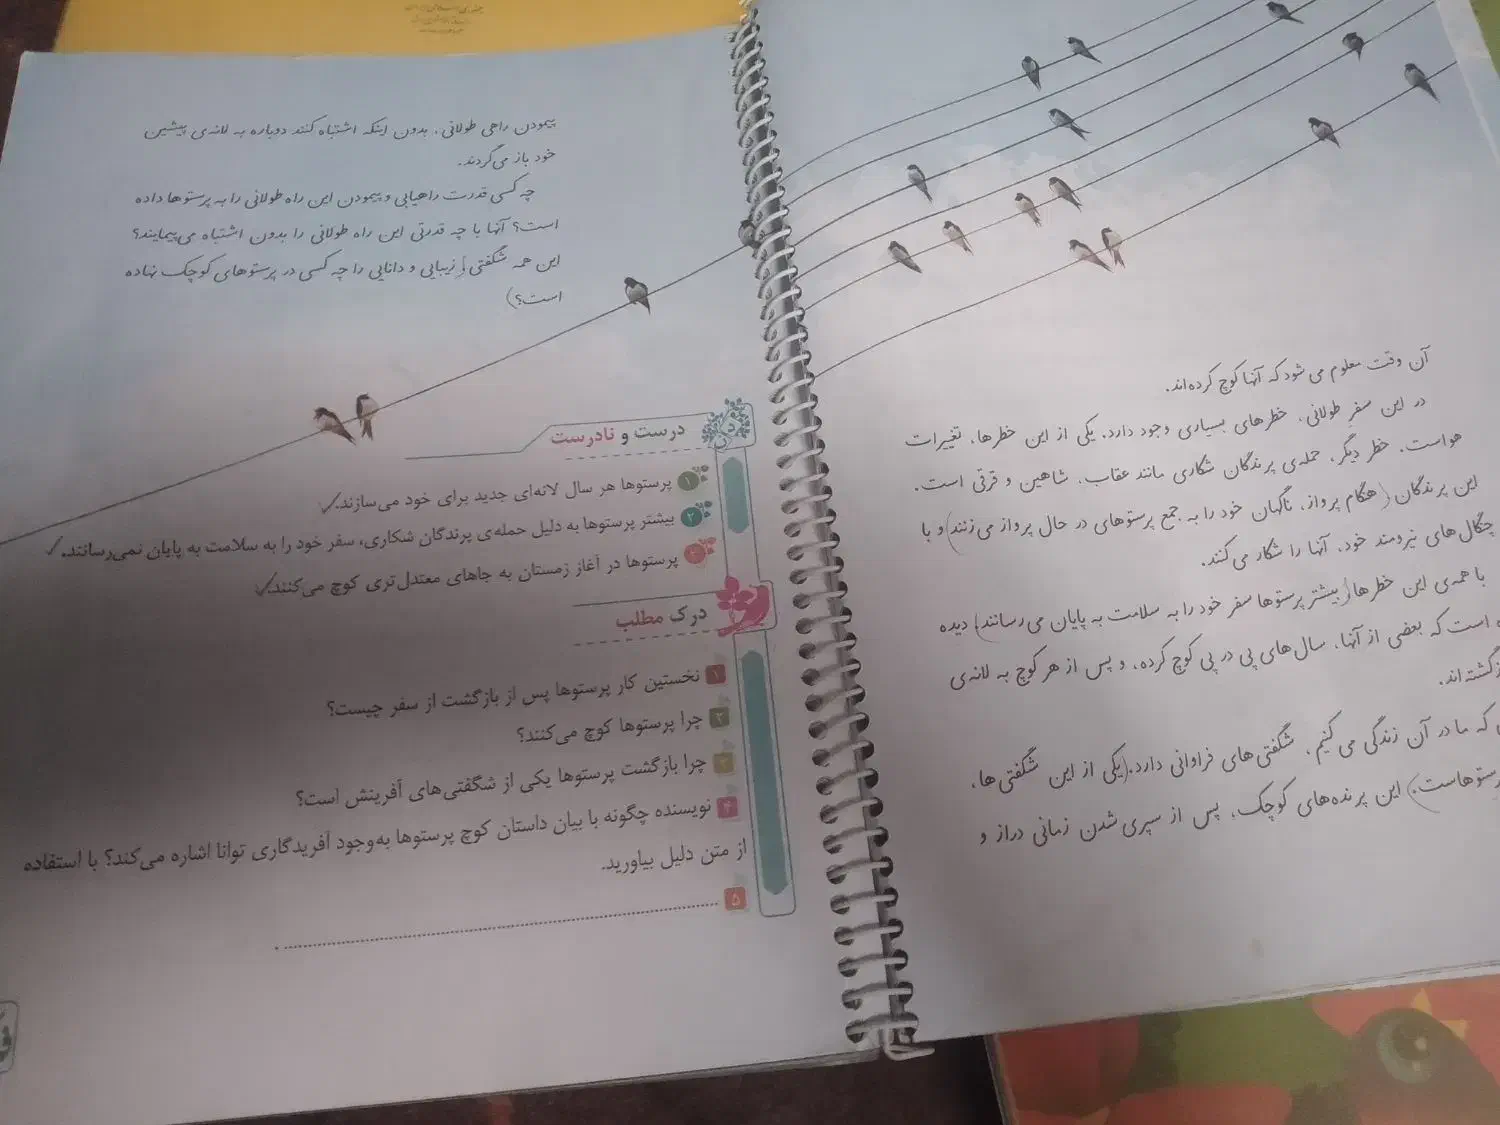 آن وقت معلوم می‌شود که آنها کوچ کرده‌اند.
در این سفرِ طولانی، خطرهای بسیاری وجود دارد. یکی از این خطرها، تغییرات
هواست. خطر دیگر، حمله‌ی پرندگان شکاری مانند عقاب، شاهین و قرقی است.
این پرندگان (هنگام پرواز، ناگهان خود را به جمع پرستوهای در حال پرواز می‌زنند) و با
چنگال‌های نیرومند خود، آنها را شکار می‌کنند.
با همه‌ی این خطرها (بیشتر پرستوها سفر خود را به سلامت به پایان می‌رسانند) دیده
است که بعضی از آنها، سال‌های پی در پی کوچ کرده، و پس از هر کوچ به لانه‌ی
که ما در آن زندگی می‌کنیم، شگفتی‌های فراوانی دارد. (یکی از این شگفتی‌ها،
این پرنده‌های کوچک، پس از سپری شدن زمانی دراز و
پیمودن راهی طولانی، بدون اینکه اشتباه کنند دوباره به لانه‌ی پیشین
خود باز می‌گردند.
چه کسی قدرت راهیابی و پیمودن این راه طولانی را به پرستوها داده
است؟ آنها با چه قدرتی این راه طولانی را بدون اشتباه می‌پیمایند؟
این همه شگفتی (زیبایی و دانایی را چه کسی در پرستوهای کوچک نهاده
است؟)
درست و نادرست
۱ پرستوها هر سال لانه‌ای جدید برای خود می‌سازند.✓
۲ بیشتر پرستوها به دلیل حمله‌ی پرندگان شکاری، سفر خود را به سلامت به پایان نمی‌رسانند.✓
۳ پرستوها در آغاز زمستان به جاهای معتدل‌تری کوچ می‌کنند.✓
درک مطلب
۱ نخستین کار پرستوها پس از بازگشت از سفر چیست؟
۲ چرا پرستوها کوچ می‌کنند؟
۳ چرا بازگشت پرستوها یکی از شگفتی‌های آفرینش است؟
۴ نویسنده چگونه با بیان داستان کوچ پرستوها به‌وجود آفریدگاری توانا اشاره می‌کند؟ با استفاده
از متن دلیل بیاورید.
۵ ........................................